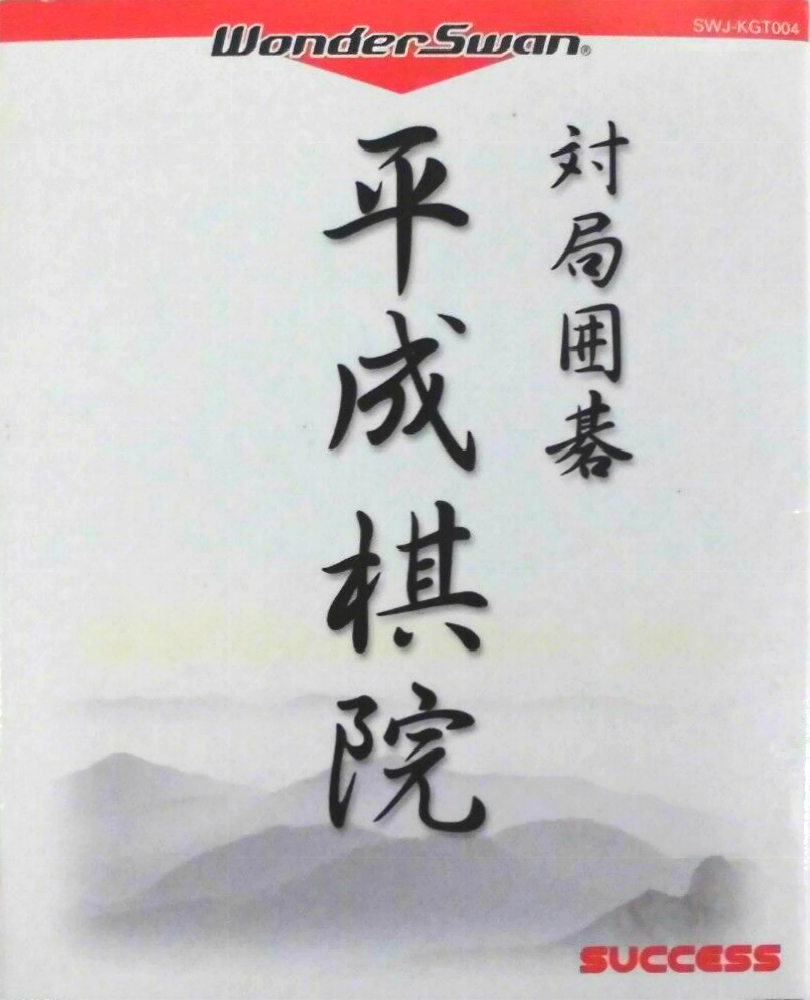 SWJ-KGT004
WonderSwan®
対局囲碁
平成棋院
SUCCESS